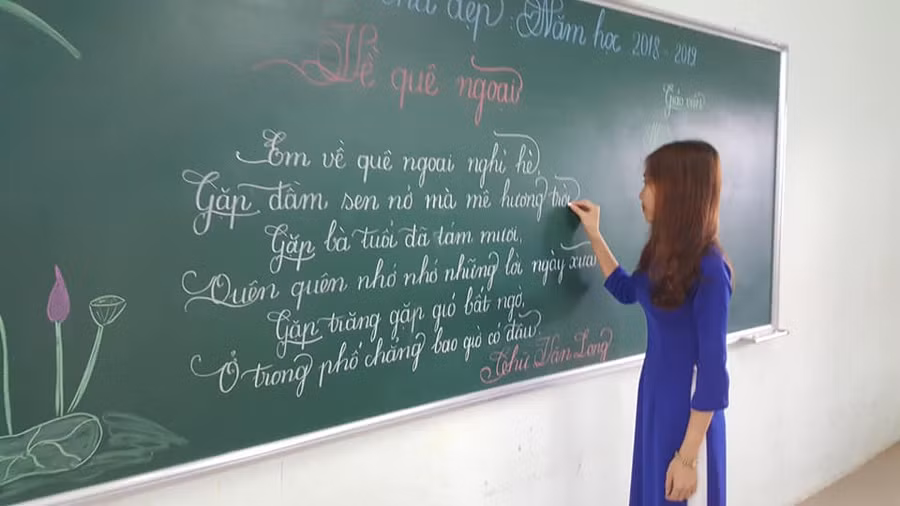 chữ đẹp. Năm học 2018 - 2019
Về quê ngoại
Giáo viên
Em về quê ngoại nghỉ hè,
Gặp đầm sen nở mà mê hương trời
Gặp bà tuổi đã tám mươi,
Quên quên nhớ nhớ những lời ngày xưa
Gặp trăng gặp gió bất ngờ,
Ở trong phố chẳng bao giờ có đâu.
Chử Văn Long